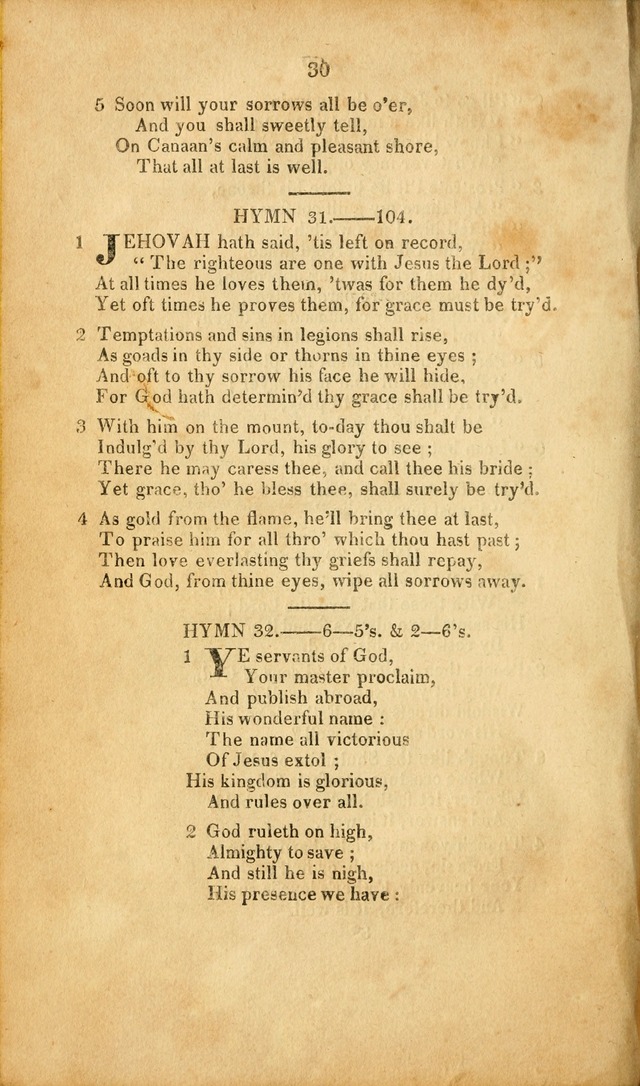 30
5 Soon will your sorrows all be o'er,
And you shall sweetly tell,
On Canaan's calm and pleasant shore,
That all at last is well.
HYMN 31.——104.
1 JEHOVAH hath said, 'tis left on record,
“ The righteous are one with Jesus the Lord ;”
At all times he loves them, 'twas for them he dy'd,
Yet oft times he proves them, for grace must be try'd.
2 Temptations and sins in legions shall rise,
As goads in thy side or thorns in thine eyes ;
And oft to thy sorrow his face he will hide,
For God hath determin'd thy grace shall be try'd.
3 With him on the mount, to-day thou shalt be
Indulg'd by thy Lord, his glory to see ;
There he may caress thee, and call thee his bride ;
Yet grace, tho' he bless thee, shall surely be try'd.
4 As gold from the flame, he'll bring thee at last,
To praise him for all thro' which thou hast past ;
Then love everlasting thy griefs shall repay,
And God, from thine eyes, wipe all sorrows away.
HYMN 32.——6—5's. & 2—6's.
1 YE servants of God,
Your master proclaim,
And publish abroad,
His wonderful name :
The name all victorious
Of Jesus extol ;
His kingdom is glorious,
And rules over all.
2 God ruleth on high,
Almighty to save ;
And still he is nigh,
His presence we have :